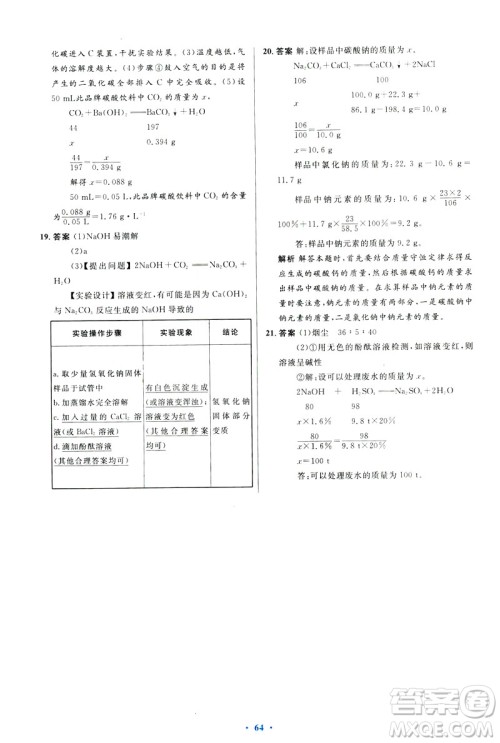 化碳进入 C 装置,干扰实验结果。(3)温度越低,气
体的溶解度越大。(4)步骤④打入空气的目的是将
产生的二氧化碳全部排入 C 中反应。(5)设
50 mL 此品牌碳酸饮料中 CO₂ 的质量为 x。
CO₂+Ba(OH)₂══BaCO₃↓+H₂O
44 197
x 0.394 g
44/197=x/0.394 g
解得 x=0.088 g
50 mL=0.05 L,此品牌碳酸饮料中 CO₂ 的含量
为0.088 g/0.05 L=1.76 g·L⁻¹
19. 答案 (1)NaOH 易潮解
(2)a
(3)【提出问题】2NaOH+CO₂══Na₂CO₃+H₂O
【实验设计】溶液变红,有可能是因为 Ca(OH)₂
与 Na₂CO₃ 反应生成的 NaOH 导致的
实验操作步骤 实验现象 结论
a. 取少量氢氧化钠固体样品于试管中
b. 加蒸馏水完全溶解
c. 加入过量的 CaCl₂ 溶液(或 BaCl₂ 溶液)
d. 滴加酚酞溶液
(其他合理答案均可)
有白色沉淀生成(或溶液变浑浊);溶液变为红色(其他合理答案均可)
氢氧化钠固体部分变质
20. 答案 解:设样品中碳酸钠的质量为 x。
Na₂CO₃+CaCl₂══CaCO₃↓+2NaCl
106 100
x 100.0 g+22.3 g+
86.1 g-198.4 g=10 g
106/100=x/10 g
x=10.6 g
样品中氯化钠的质量为:22.3 g-10.6 g=
11.7 g
样品中钠元素的质量为:10.6 g×23×2/106×
100%+11.7 g×23/58.5×100%=9.2 g
答:样品中钠元素的质量为 9.2 g。
解析 解答本题时,首先要根据质量守恒定律求得反
应生成的碳酸钙的质量,再根据碳酸钙的质量求出
样品中碳酸钠的质量,从而求得样品中氯化钠的质
量。需要注意的是,钠元素的质量有两部分,碳酸钠
中钠元素的质量和氯化钠中钠元素的质量。
21. 答案 (1)烟尘 36∶5∶40
(2)①用无色的酚酞溶液检测,如溶液变红,则
溶液呈碱性
②解:设可以处理废水的质量为 x。
2NaOH+H₂SO₄══Na₂SO₄+2H₂O
80 98
x×1.6% 9.8 t×20%
80/x×1.6%=98/9.8 t×20%
x=100 t
答:可以处理废水的质量为 100 t。
· 64 ·